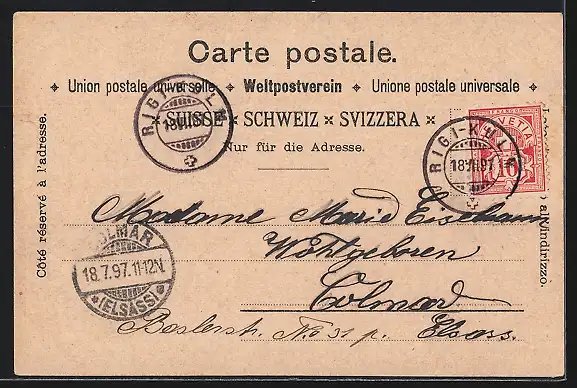 Carte postale.
✦ Union postale universelle ✦ Weltpostverein ✦ Unione postale universale ✦
× SUISSE × SCHWEIZ × SVIZZERA ×
Nur für die Adresse.
Côté réservé à l'adresse.
all'indirizzo.
RIGI-KULM
18.VII.97
RIGI-KULM
18.VII.97
FRANCO
HELVETIA
10
COLMAR
18.7.97.11-12N.
*(ELSASS)*
Madame Marie
Wohlgeboren
Colmar
Baslerstr. No 31 p. Elsass.